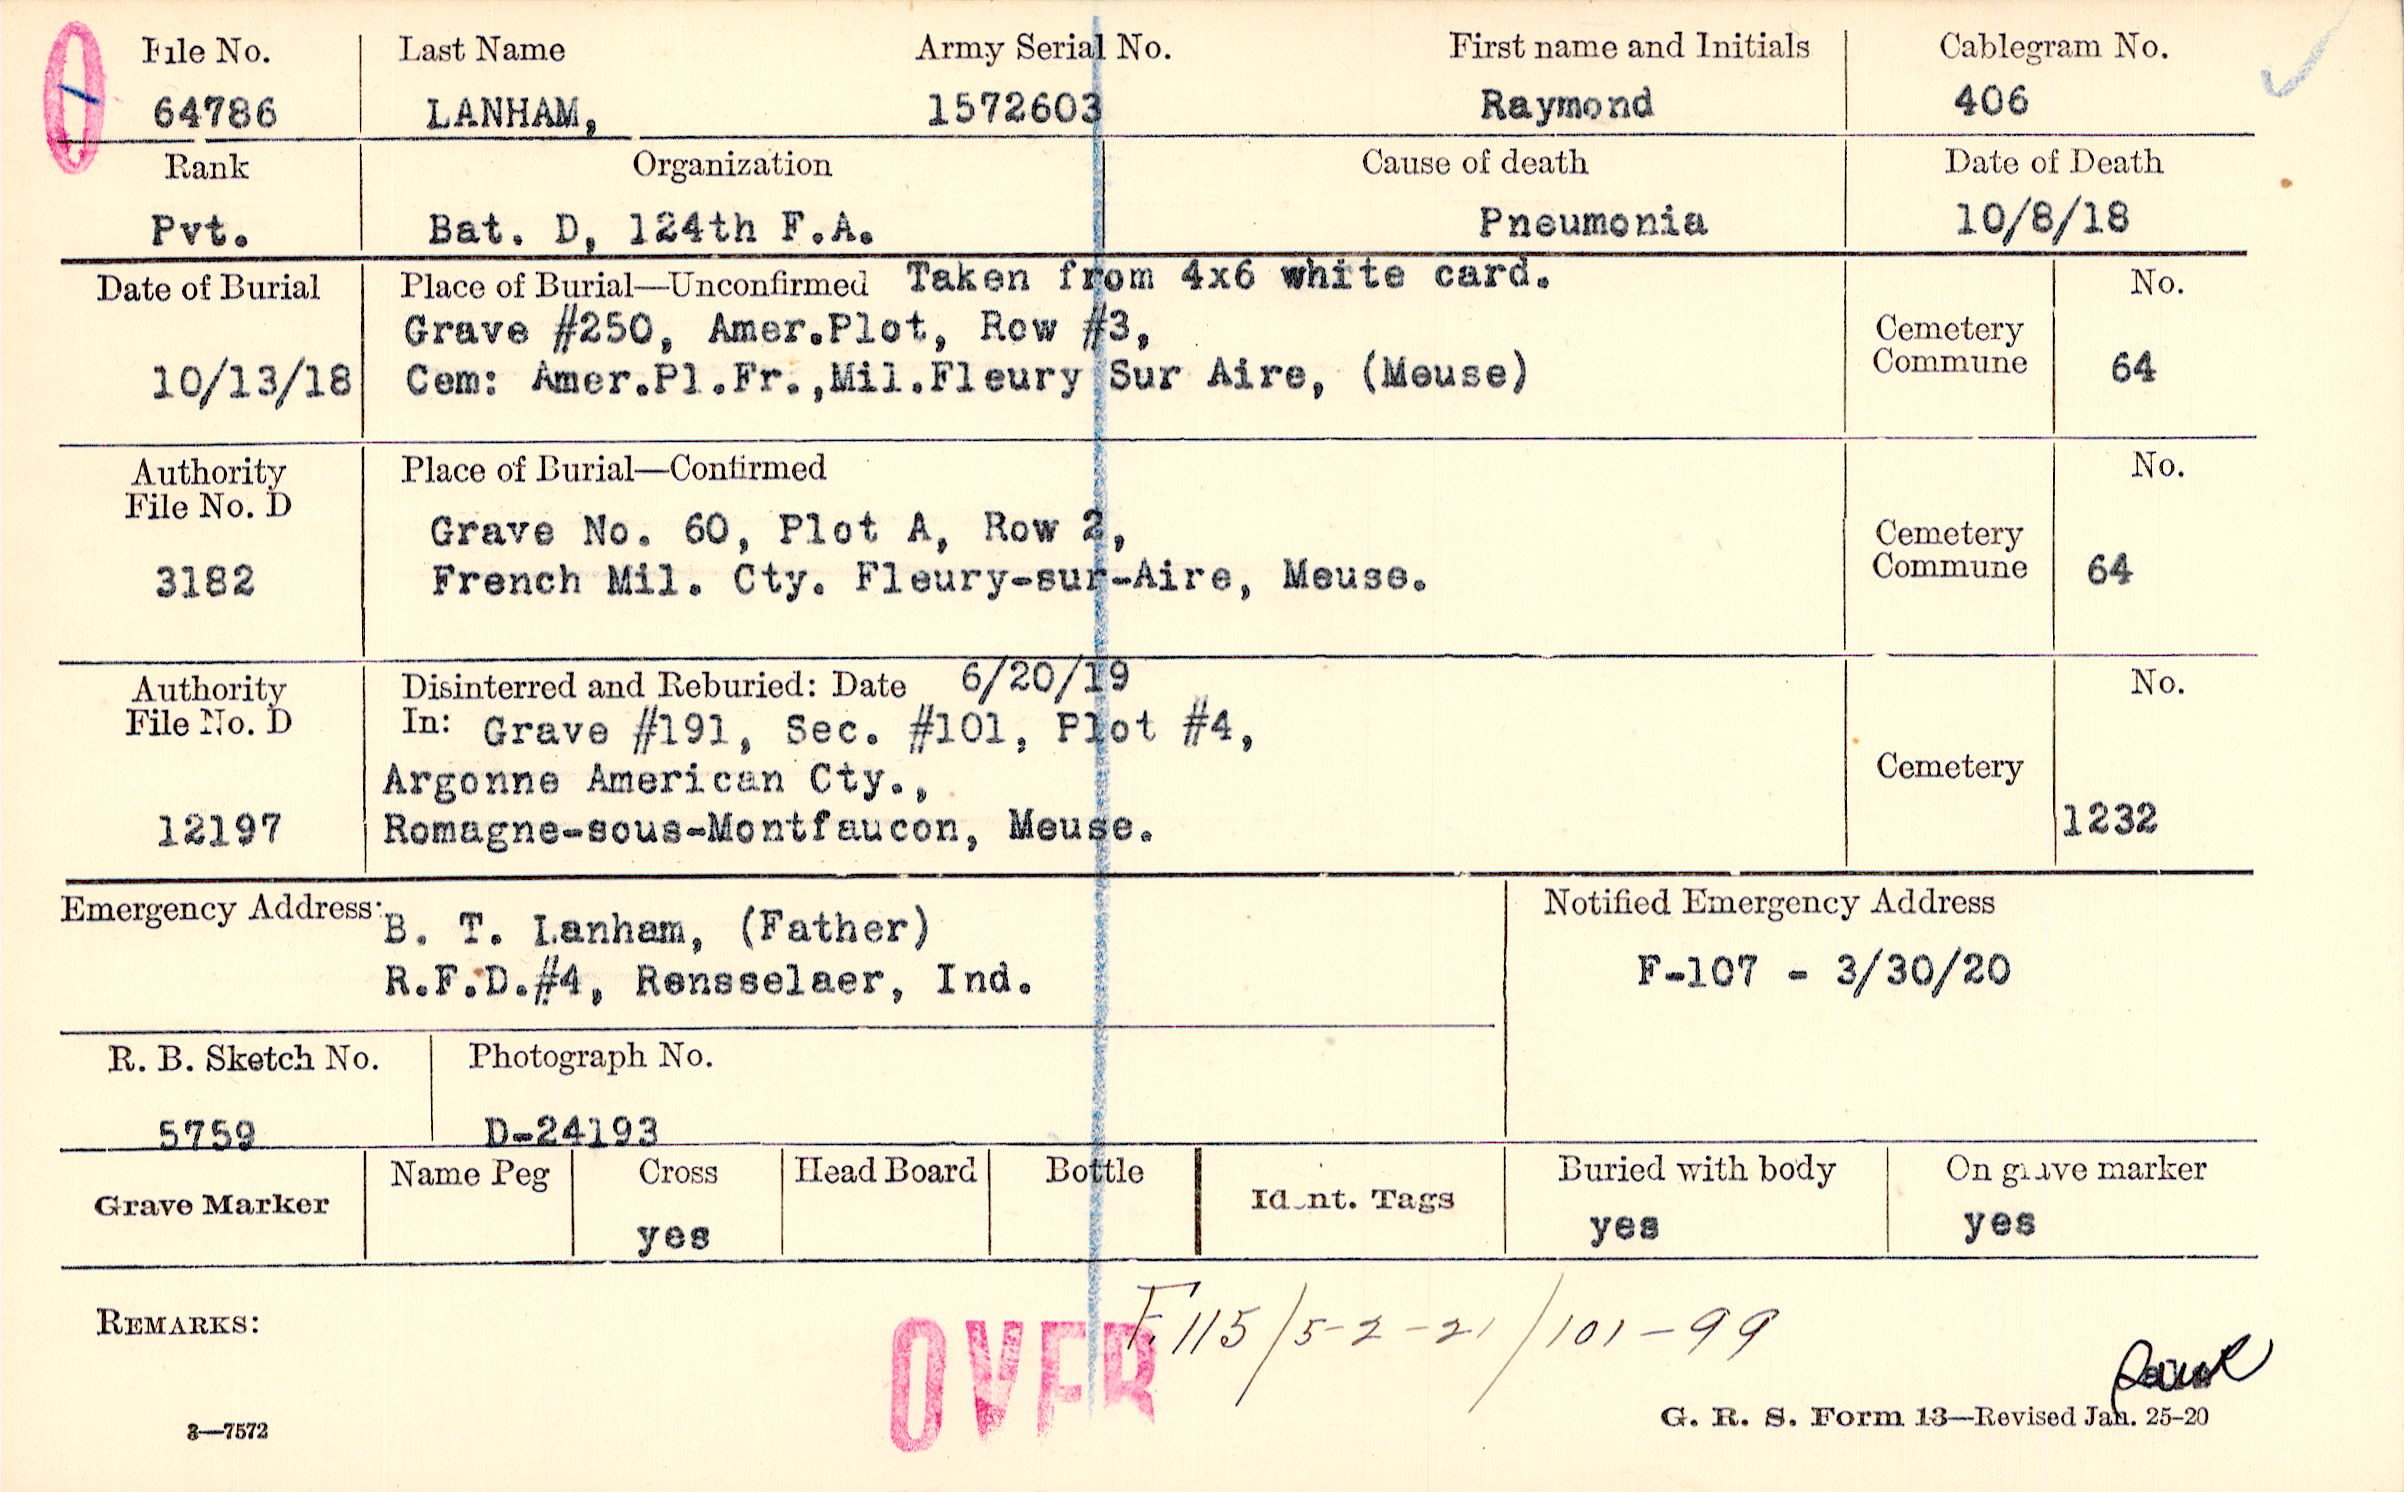 File No. Last Name Army Serial No. First name and Initials Cablegram No.
64786 LANHAM, 1572603 Raymond 406
Rank Organization Cause of death Date of Death
Pvt. Bat. D, 124th F.A. Pneumonia 10/8/18
Date of Burial Place of Burial—Unconfirmed Taken from 4x6 white card. No.
Grave #250, Amer.Plot, Row #3, Cemetery
Commune
10/13/18 Cem: Amer.Pl.Fr.,Mil.Fleury Sur Aire, (Meuse) 64
Authority Place of Burial—Confirmed No.
File No. D
Grave No. 60, Plot A, Row 2, Cemetery
Commune
3182 French Mil. Cty. Fleury-sur-Aire, Meuse. 64
Authority Disinterred and Reburied: Date 6/20/19 No.
File No. D In: Grave #191, Sec. #101, Plot #4,
Argonne American Cty., Cemetery
12197 Romagne-sous-Montfaucon, Meuse. 1232
Emergency Address: B. T. Lanham, (Father) Notified Emergency Address
R.F.D.#4, Rensselaer, Ind. F-107 - 3/30/20
R. B. Sketch No. Photograph No.
5759 D-24193
Grave Marker Name Peg Cross Head Board Bottle Ident. Tags Buried with body On grave marker
yes yes yes
REMARKS: OVER F.115/5-2-21/101-99
3—7572 G. R. S. Form 13—Revised Jan. 25-20